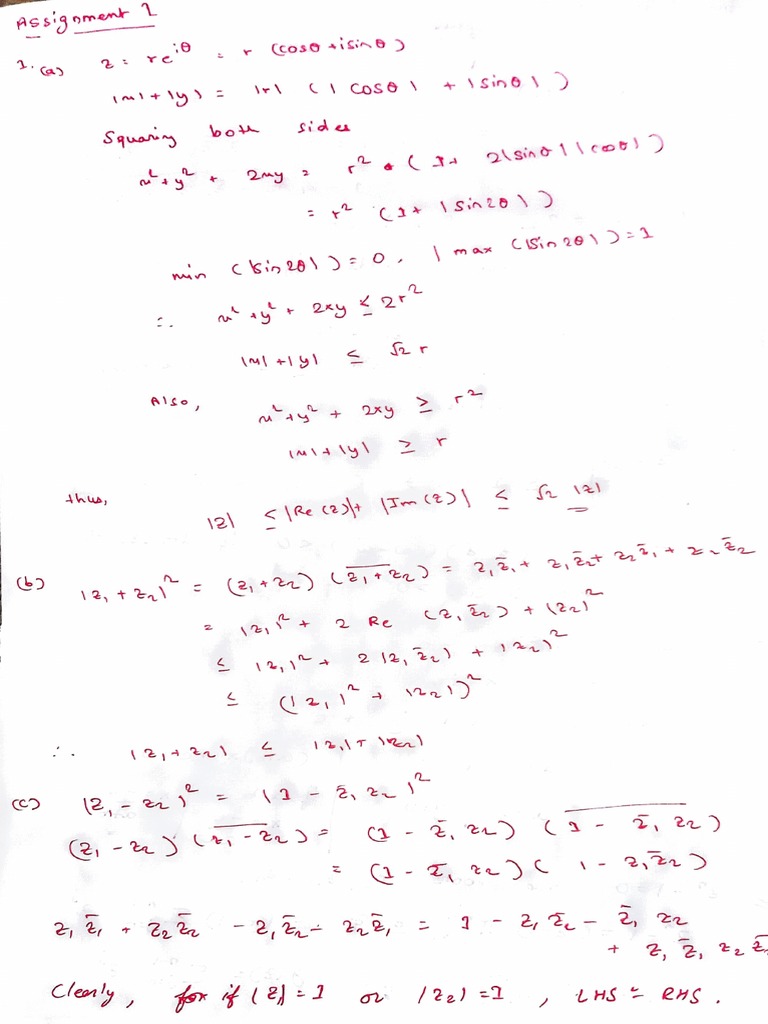 Assignment 1
1. (a) z = re^{iθ} = r (cosθ + isinθ)
|x| + |y| = |r| (|cosθ| + |sinθ|)
Squaring both sides
x² + y² + 2xy = r² (1 + 2|sinθ||cosθ|)
= r² (1 + |sin2θ|)
min (|sin2θ|) = 0, | max (|sin2θ|) = 1
∴ x² + y² + 2xy ≤ 2r²
|x| + |y| ≤ √2 r
Also, x² + y² + 2xy ≥ r²
|x| + |y| ≥ r
thus,
|z| ≤ |Re(z)| + |Im(z)| ≤ √2 |z|
(b) |z₁ + z₂|² = (z₁ + z₂) (z̅₁ + z̅₂) = z₁z̅₁ + z₁z̅₂ + z₂z̅₁ + z₂z̅₂
= |z₁|² + 2 Re (z₁z̅₂) + |z₂|²
≤ |z₁|² + 2|z₁z̅₂| + |z₂|²
≤ (|z₁|² + |z₂|)²
∴ |z₁ + z₂| ≤ |z₁| + |z₂|
(c) |z₁ - z₂|² = |1 - z̅₁z₂|²
(z₁ - z₂) (\overline{z₁ - z₂}) = (1 - z̅₁z₂) (\overline{1 - z̅₁z₂})
= (1 - z̅₁z₂) (1 - z₁z̅₂)
z₁z̅₁ + z₂z̅₂ - z₁z̅₂ - z₂z̅₁ = 1 - z₁z̅₂ - z̅₁z₂
+ z₁z̅₁z₂z̅
Clearly, for if |z| = 1 or |z₂| = 1, LHS = RHS.